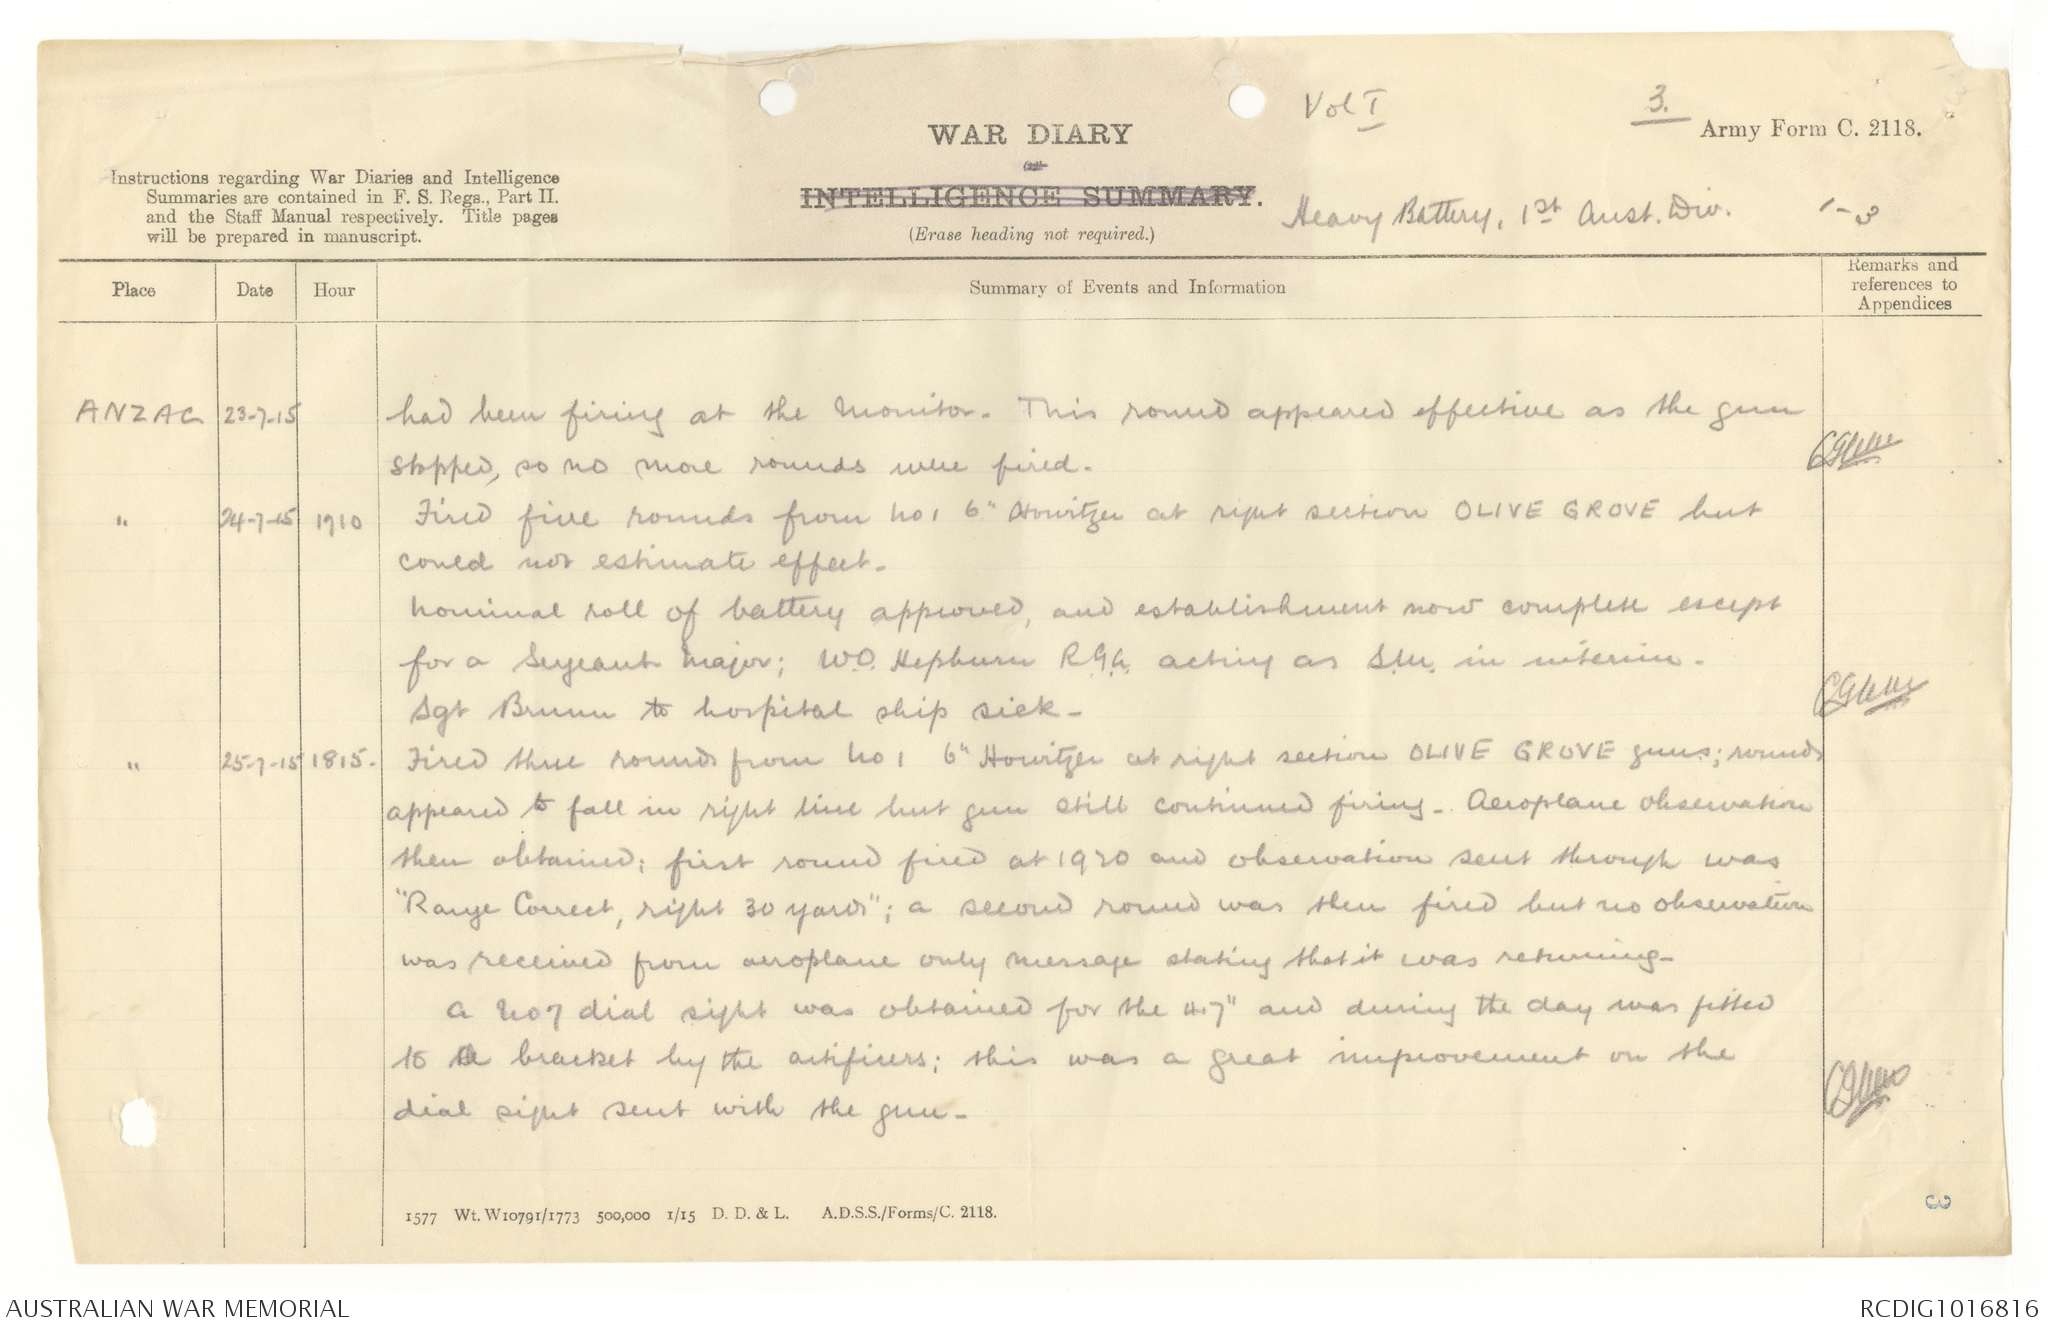 Vol I
3.
Army Form C. 2118.
WAR DIARY
or
INTELLIGENCE SUMMARY.
(Erase heading not required.)
Instructions regarding War Diaries and Intelligence
Summaries are contained in F. S. Regs., Part II.
and the Staff Manual respectively. Title pages
will be prepared in manuscript.
Heavy Battery, 1st Aust. Div.
1-3
Place
Date
Hour
Summary of Events and Information
Remarks and
references to
Appendices
ANZAC 23-7-15 had been firing at the Monitor. This round appeared effective as the gun
stopped, so no more rounds were fired.
" 24-7-15 1710 Fired five rounds from No 1 6" Howitzer at right section OLIVE GROVE but
could not estimate effect.
Nominal roll of battery approved, and establishment now complete except
for a Sergeant Major; W.O. Hepburn R.G.A. acting as S.M. in interim.
Sgt to hospital ship sick.
" 25-7-15 1815. Fired three rounds from No 1 6" Howitzer at right section OLIVE GROVE guns; rounds
appeared to fall in right line but gun still continued firing. Aeroplane observation
then obtained; first round fired at 1920 and observation sent through was
"Range Correct, right 30 yards"; a second round was then fired but no observation
was received from aeroplane only message stating that it was returning.
A No 7 dial sight was obtained for the 4.7" and during the day was fitted
to bracket by the artificers; this was a great improvement on the
dial sight sent with the gun.
1577 Wt. W10791/1773 500,000 1/15 D. D. & L. A.D.S.S./Forms/C. 2118.
3
AUSTRALIAN WAR MEMORIAL
RCDIG1016816